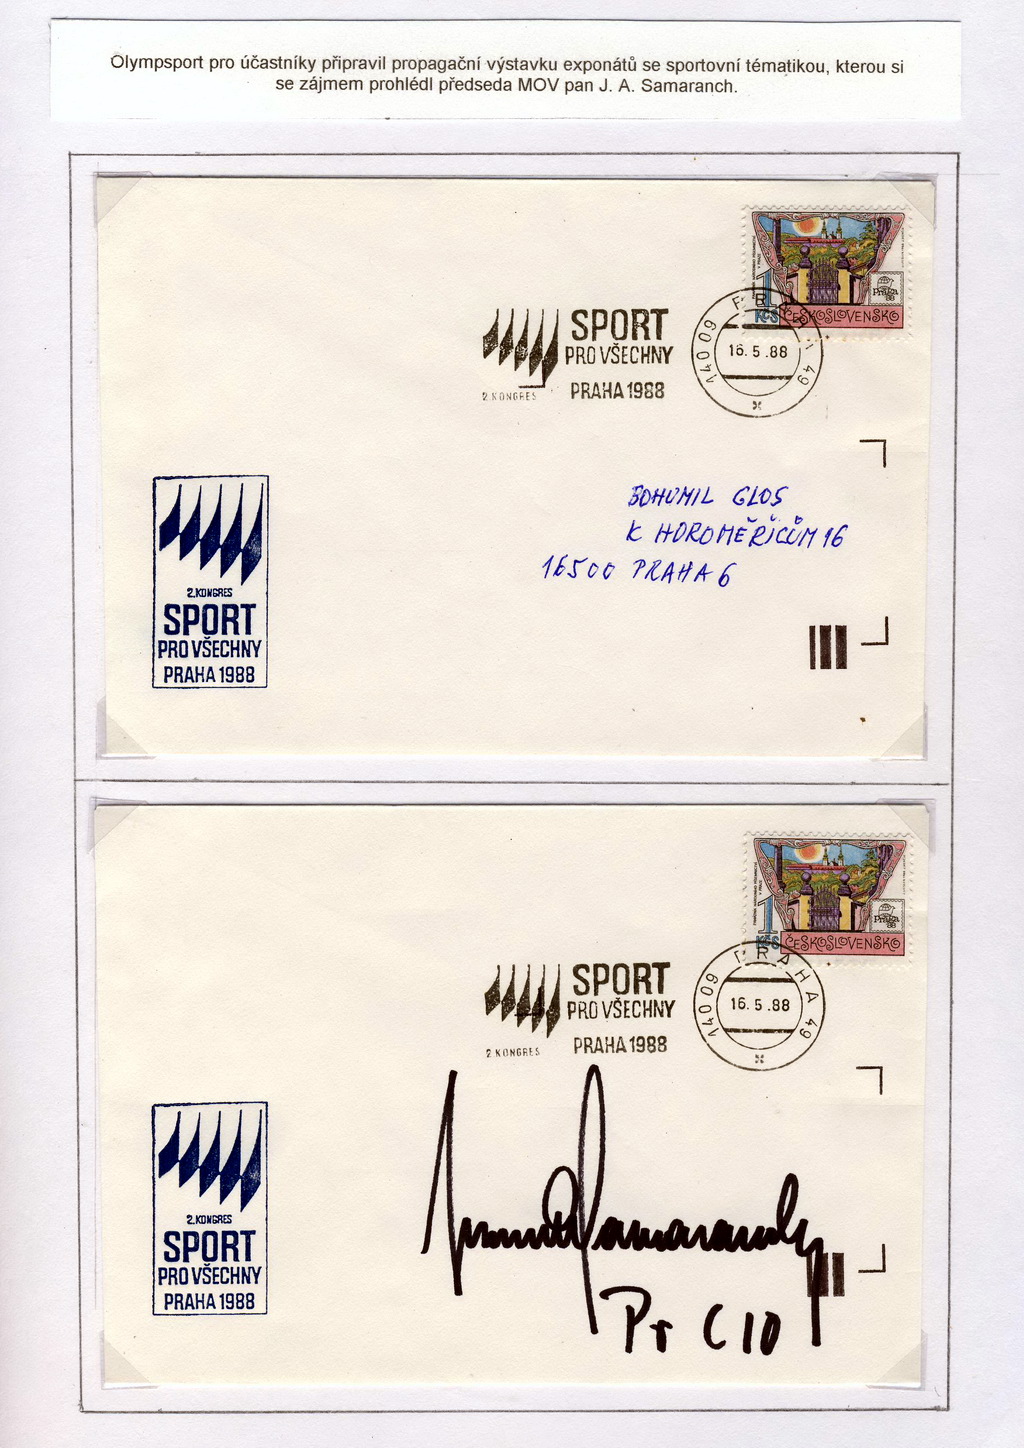 Olympsport pro účastníky připravil propagační výstavku exponátů se sportovní tématikou, kterou si
se zájmem prohlédl předseda MOV pan J. A. Samaranch.
Praga
88
1
Kčs
ČESKOSLOVENSKO
SPORT
PRO VŠECHNY
2. KONGRES
PRAHA 1988
140 09 PRAHA 49
16.5.88
BOHUMIL GLOS
K HOROMĚŘICŮM 16
16500 PRAHA 6
2. KONGRES
SPORT
PRO VŠECHNY
PRAHA 1988
Praga
88
1
Kčs
ČESKOSLOVENSKO
SPORT
PRO VŠECHNY
2. KONGRES
PRAHA 1988
140 09 PRAHA 49
16.5.88
2. KONGRES
SPORT
PRO VŠECHNY
PRAHA 1988
Samaranch
Pt CIO